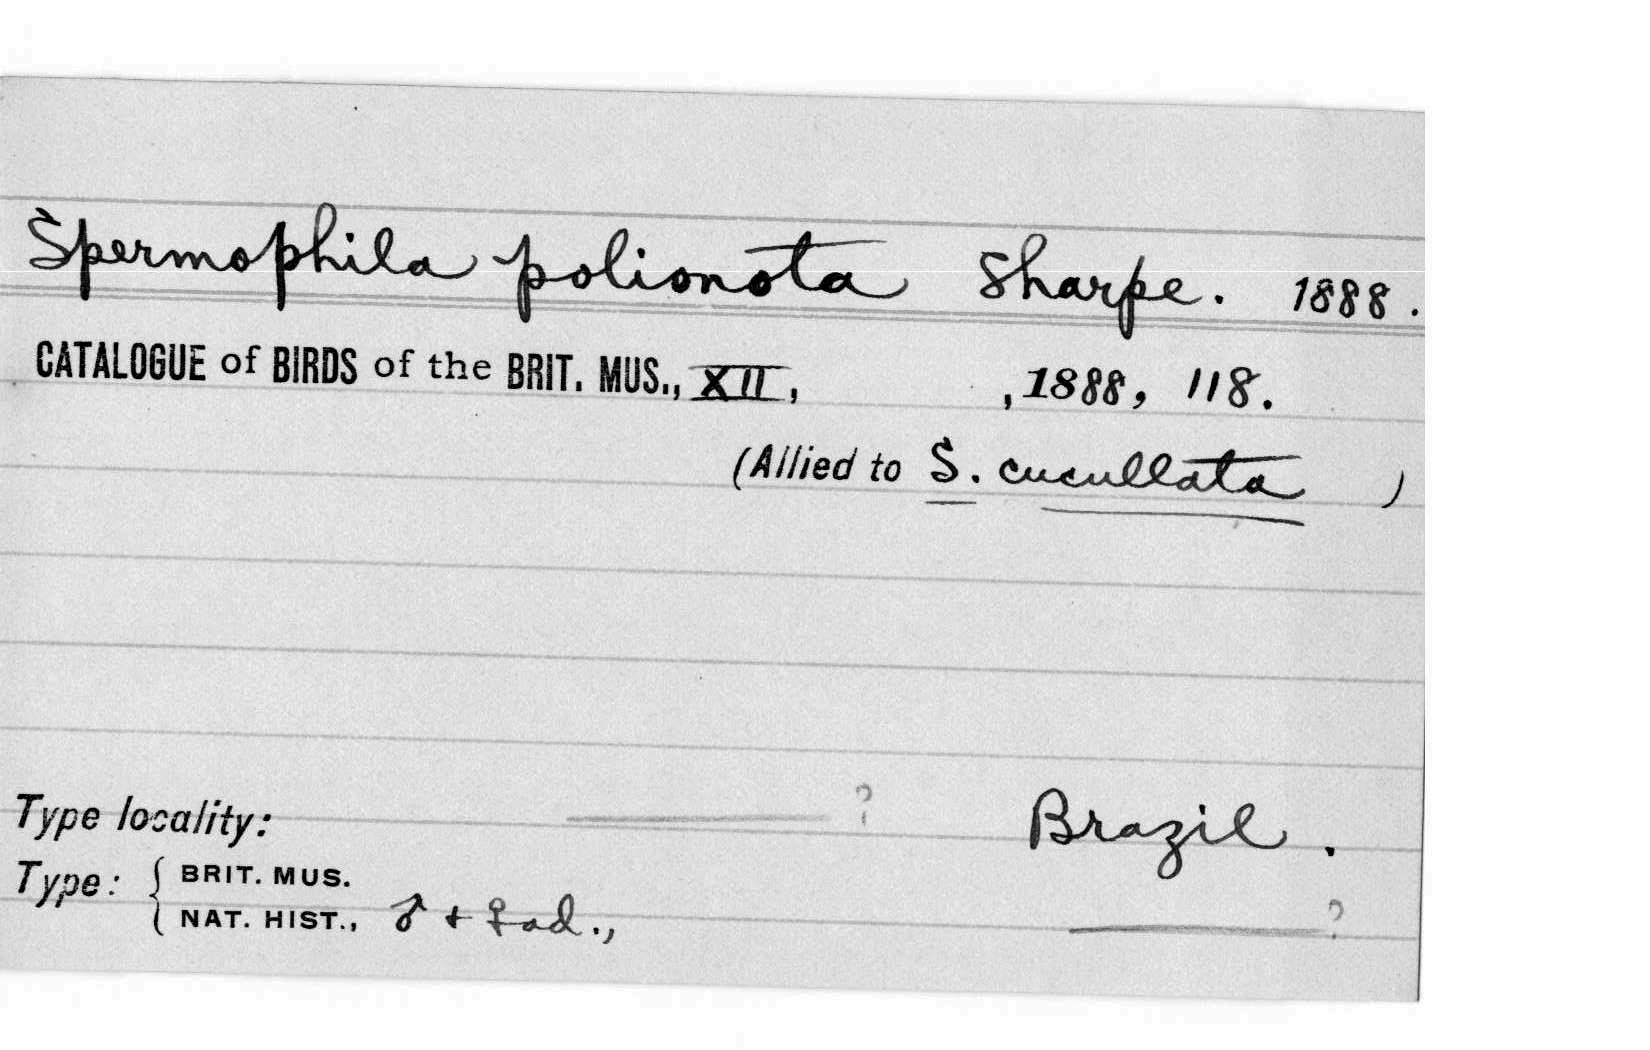 Spermophila polionota Sharpe. 1888.
CATALOGUE of BIRDS of the BRIT. MUS., XII, , 1888, 118.
(Allied to S. cucullata )
Type locality: ? Brazil.
Type: { BRIT. MUS.
NAT. HIST., ♂ + ♀ ad., ?